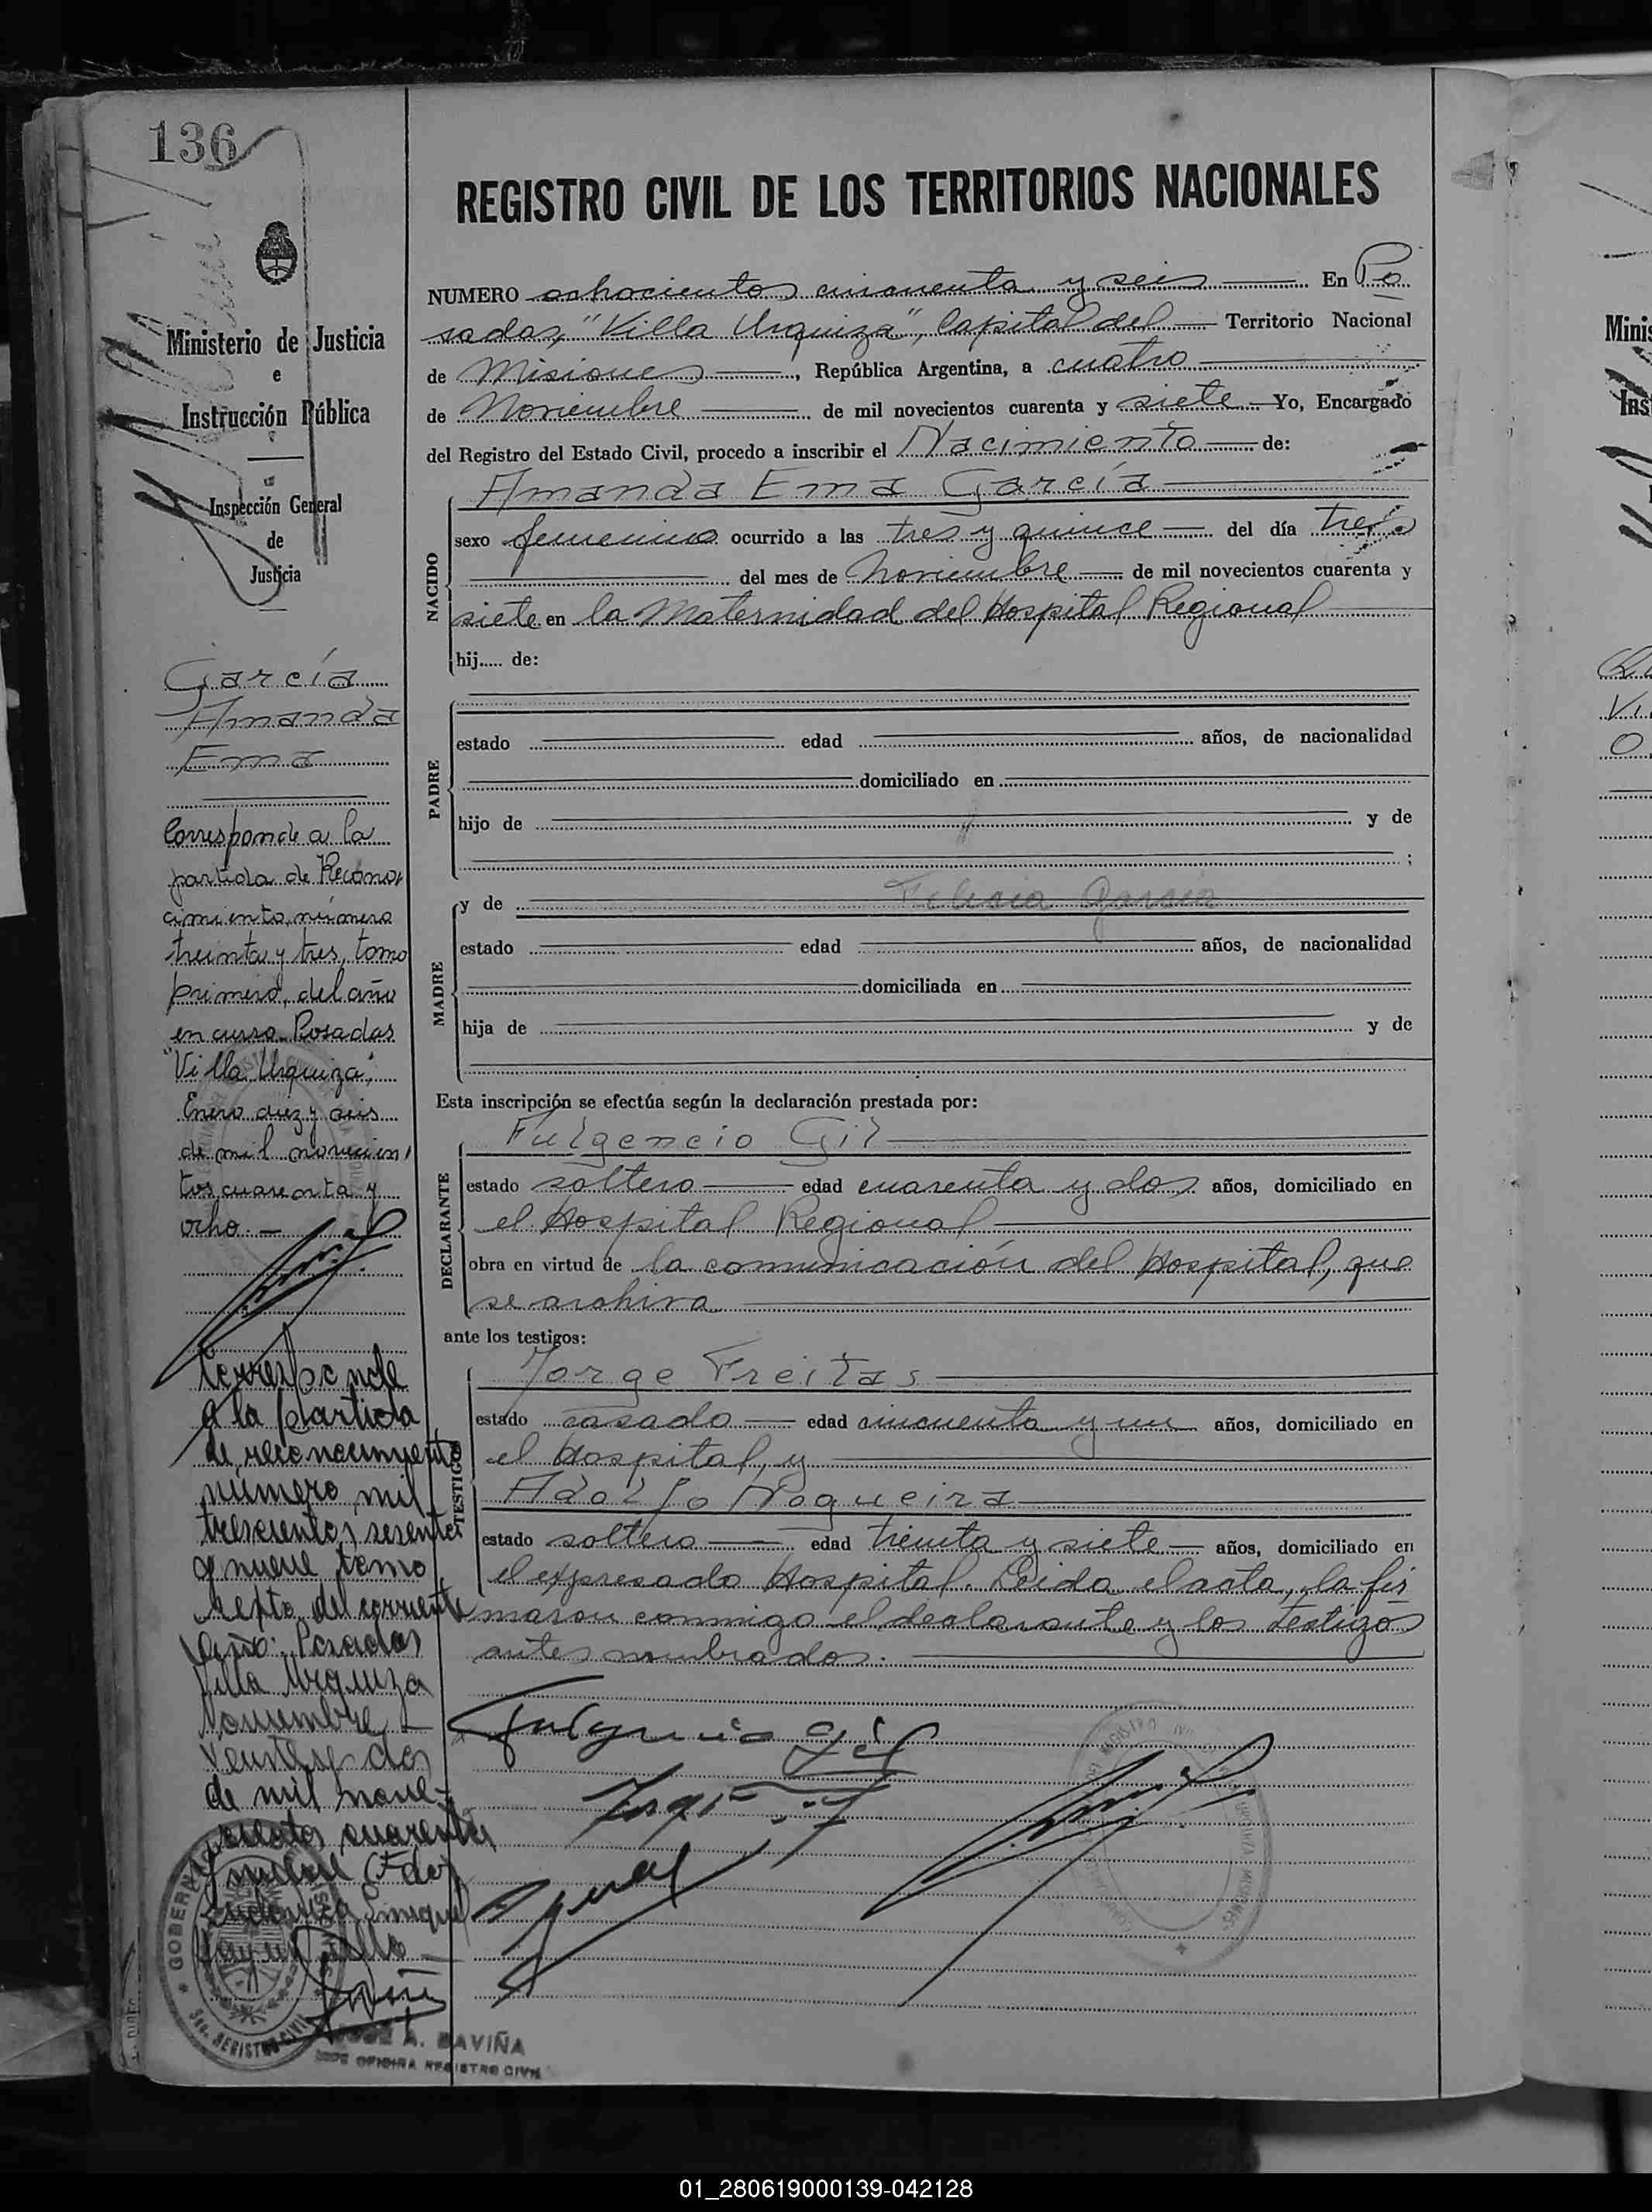 136
REGISTRO CIVIL DE LOS TERRITORIOS NACIONALES
Ministerio de Justicia
e
Instrucción Pública
Inspección General
de
Justicia
García
Amanda
Ema
Corresponde a la
partida de Recono,
cimiento, número
treinta y tres, tomo
primero, del año
en curso. Posadas
"Villa Urquiza",
Enero diez y seis
de mil novecien,
tos cuarenta y
ocho.-
Corresponde
a la partida
de reconocimiento
número mil
trescientos sesenta
y nueve tomo
septo del corriente
año: Posadas
Villa Urquiza
Noviembre
veinte y dos
de mil nove-
cientos cuarenta
y nueve (Fdo)
Enrique
NUMERO ochocientos cincuenta y seis En Po
sadas, "Villa Urquiza", Capital del Territorio Nacional
de Misiones, República Argentina, a cuatro
de Noviembre de mil novecientos cuarenta y siete Yo, Encargado
del Registro del Estado Civil, procedo a inscribir el Nacimiento de:
NACIDO
Amanda Ema García
sexo femenino ocurrido a las tres y quince del día tres
del mes de Noviembre de mil novecientos cuarenta y
siete en la Maternidad del Hospital Regional
hij..... de:
PADRE
estado edad años, de nacionalidad
domiciliado en
hijo de y de
;
MADRE
y de Felisia Garcia
estado edad años, de nacionalidad
domiciliada en
hija de y de
Esta inscripción se efectúa según la declaración prestada por:
DECLARANTE
Fulgencio Gil
estado soltero edad cuarenta y dos años, domiciliado en
el Hospital Regional
obra en virtud de la comunicación del Hospital, que
se archiva
ante los testigos:
TESTIGO
Jorge Freitas
estado casado edad cincuenta y un años, domiciliado en
el Hospital, y
Adolfo Nogueira
estado soltero edad treinta y siete años, domiciliado en
el expresado Hospital. Leida el acta, la fir
maron conmigo el declarante y los testigos
antes nombrados.
Fulgencio Gil
GOBERN
REGISTRO CIVIL
A. DAVIÑA
JEFE OFICINA REGISTRO CIVIL
01_280619000139-042128